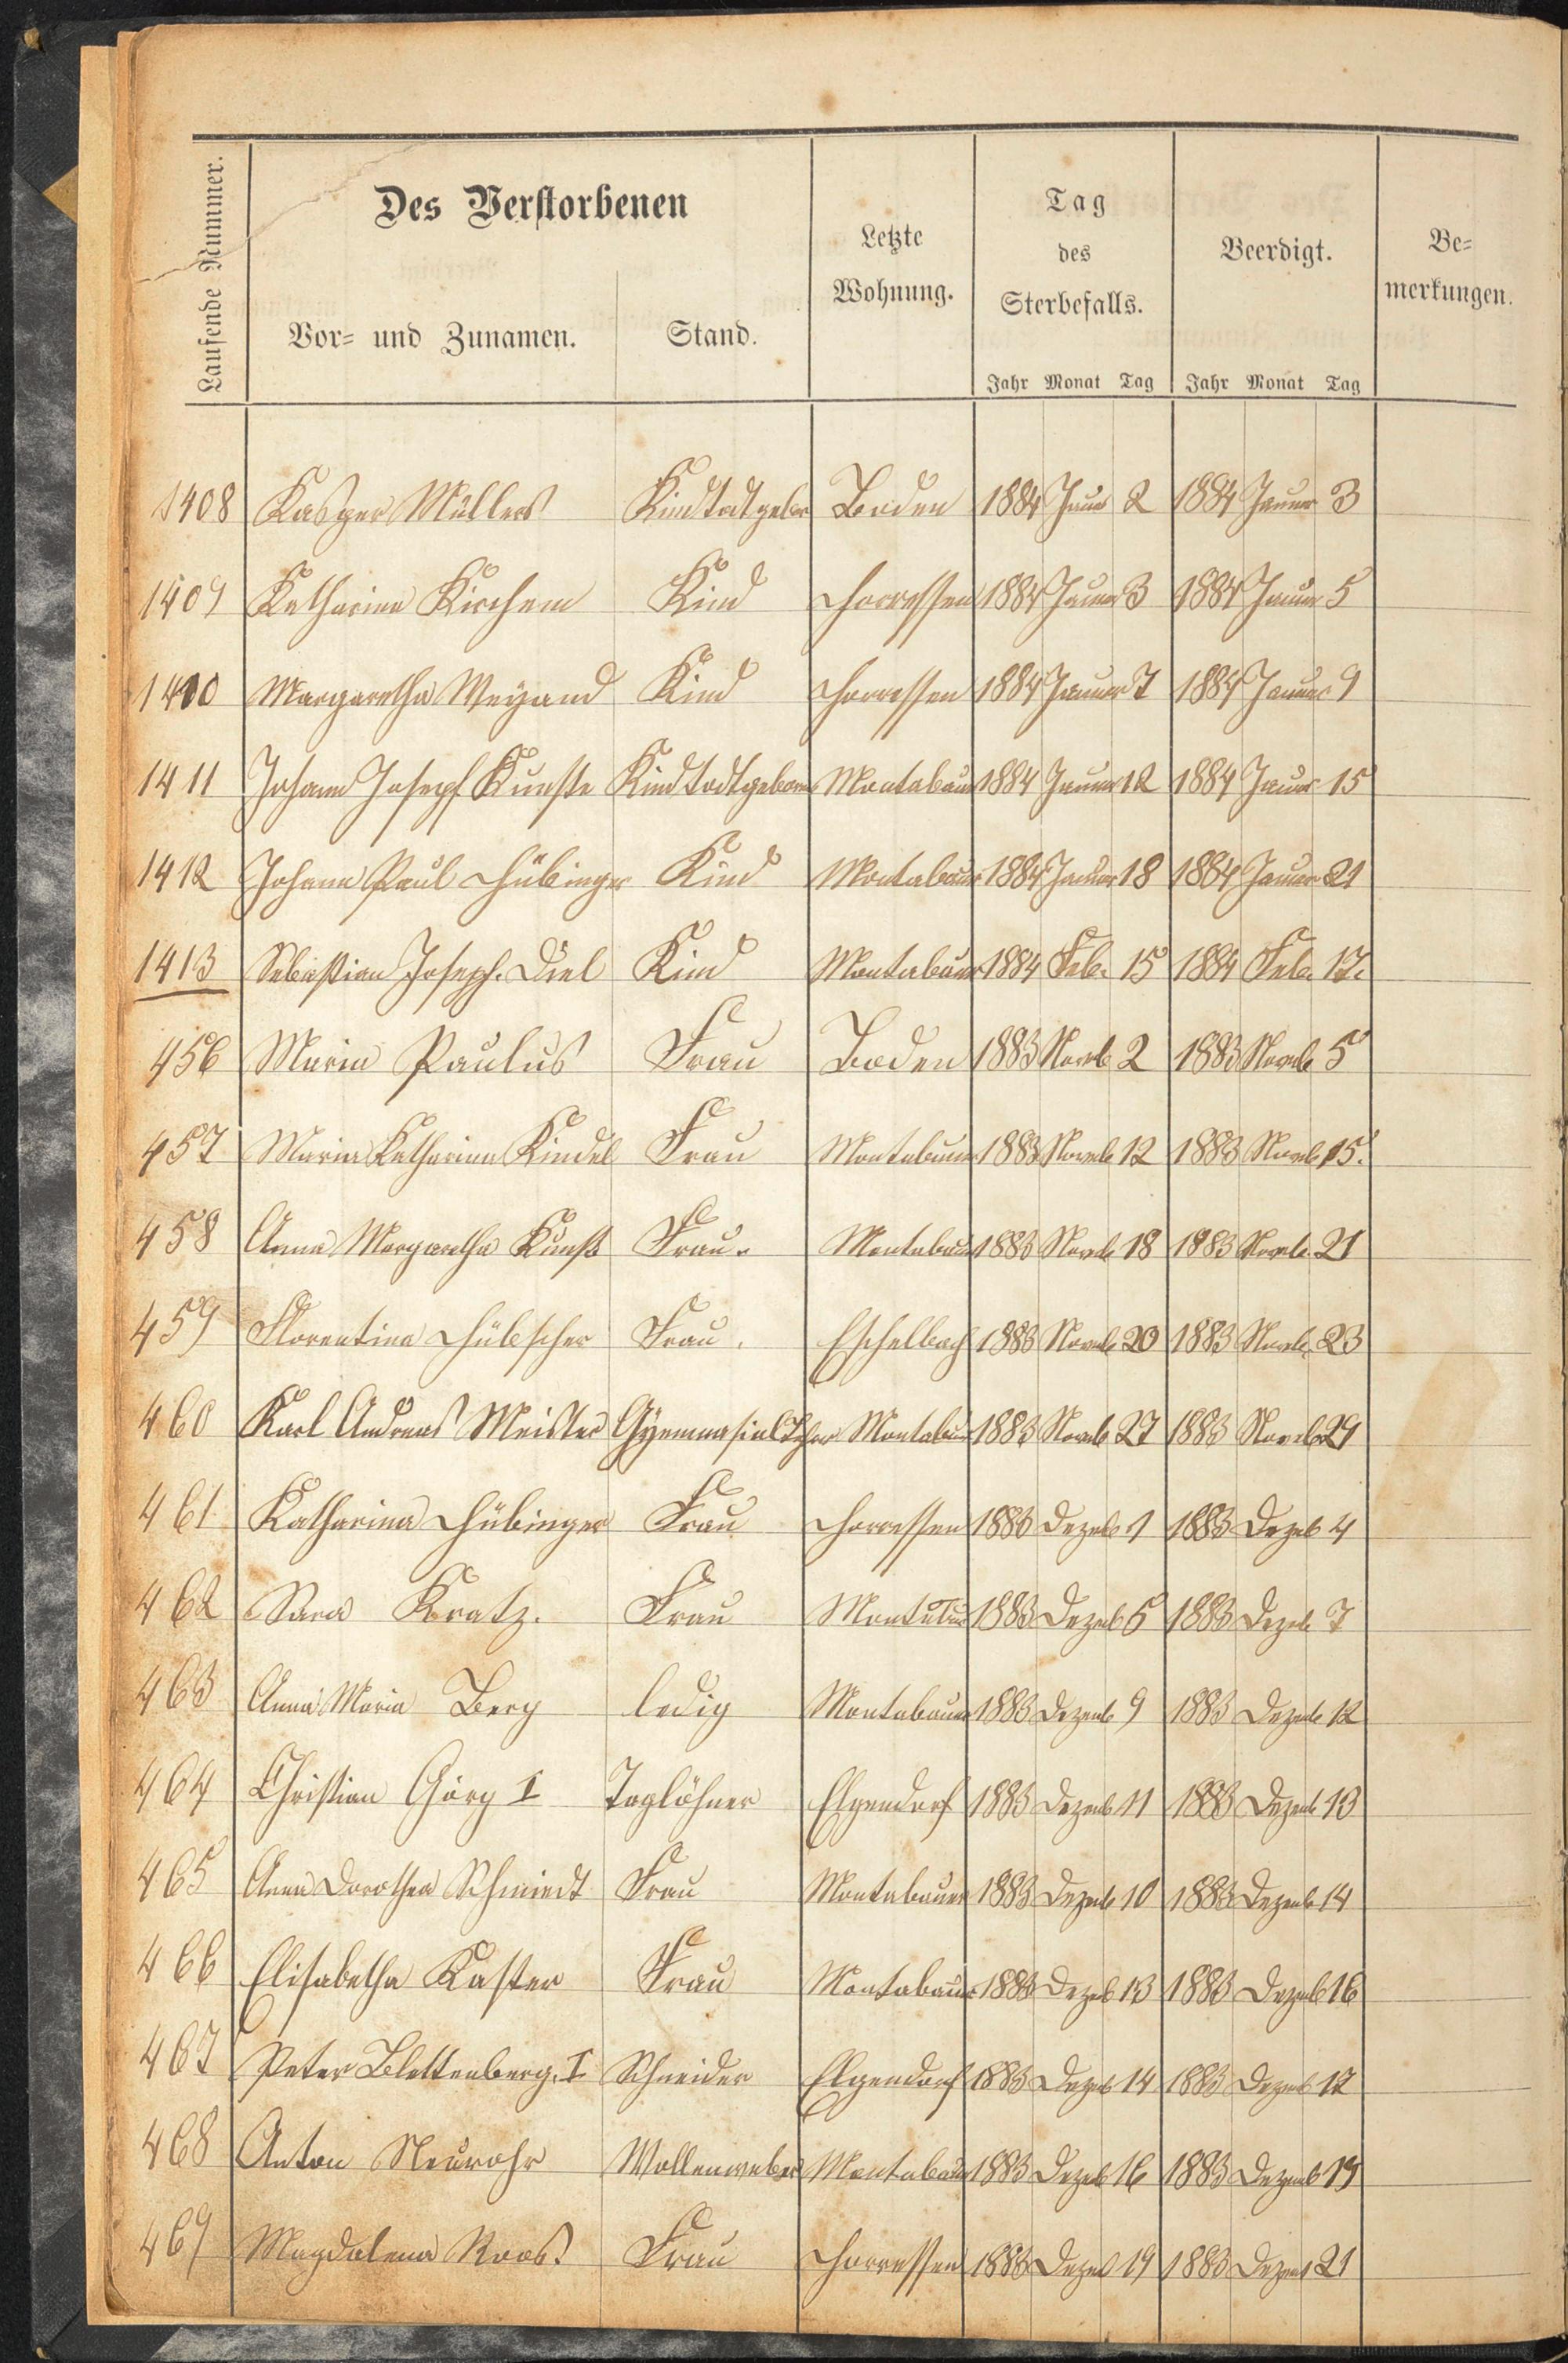 Laufende Nummer.
Des Verstorbenen
Vor= und Zunamen.
Stand.
Letzte
Wohnung.
Tag
des
Sterbefalls.
Jahr Monat Tag
Beerdigt.
Jahr Monat Tag
Be=
merkungen.
1408 Kasper Müller Kind todtgebor Boden 1884 Januar 2 1884 Januar 3
1409 Katharina Kirchem Kind Horressen 1884 Januar 3 1884 Januar 5
1410 Margaretha Weyand Kind Horressen 1884 Januar 7 1884 Januar 9
1411 Johann Josepf Kunste Kind todtgeboren Montabaur 1884 Januar 12 1884 Januar 15
1412 Johann Paul Hübinger Kind Montabaur 1884 Januar 18 1884 Januar 21
1413 Sebastian Joseph. Diel Kind Montabaur 1884 Feb. 15 1884 Feb. 17.
456 Maria Paulus Frau Boden 1883 Novb 2 1883 Novb 5
457 Maria Katharina Kindel Frau Montabaur 1883 Novb 12 1883 Novb 15.
458 Anna Margaretha Kunst Frau. Montabaur 1883 Novb 18 1883 Novb 21
459 Florentina Hübscher Frau. Eschelbach 1883 Novb 20 1883 Novb. 23
460 Karl Andreas Meister Montabaur 1883 Novb 27 1883 Novb 29
461 Katharina Hübinger Frau Horressen 1883 Dezeb 1 1883 Dezeb 4
462 Sara Kratz. Frau Montabaur 1883 Dezeb 5 1883 Dezeb 7
463 Anna Maria Berg ledig Montabaur 1883 Dezemb 9 1883 Dezemb 12
464 Christian Görg I Taglöhner Elgendorf 1883 Dezemb 11 1883 Dezemb 13
465 Anna Dorothea Schmiedt Frau Montabaur 1883 Dezemb 10 1883 Dezemb 14
466 Elisabetha Kaster Frau Montabaur 1883 Dezeb 13 1883 Dezeb 16
467 Peter Blettenberg. I Schneider Elgendorf 1883 Dezeb 14 1883 Dezeb 17
468 Anton Neurohr Wollenweber Montabaur 1883 Dezeb 16 1883 Dezemb 19
469 Magdalena Roos. Frau Horressen 1883 Dezeb 19 1883 Dezemb 21